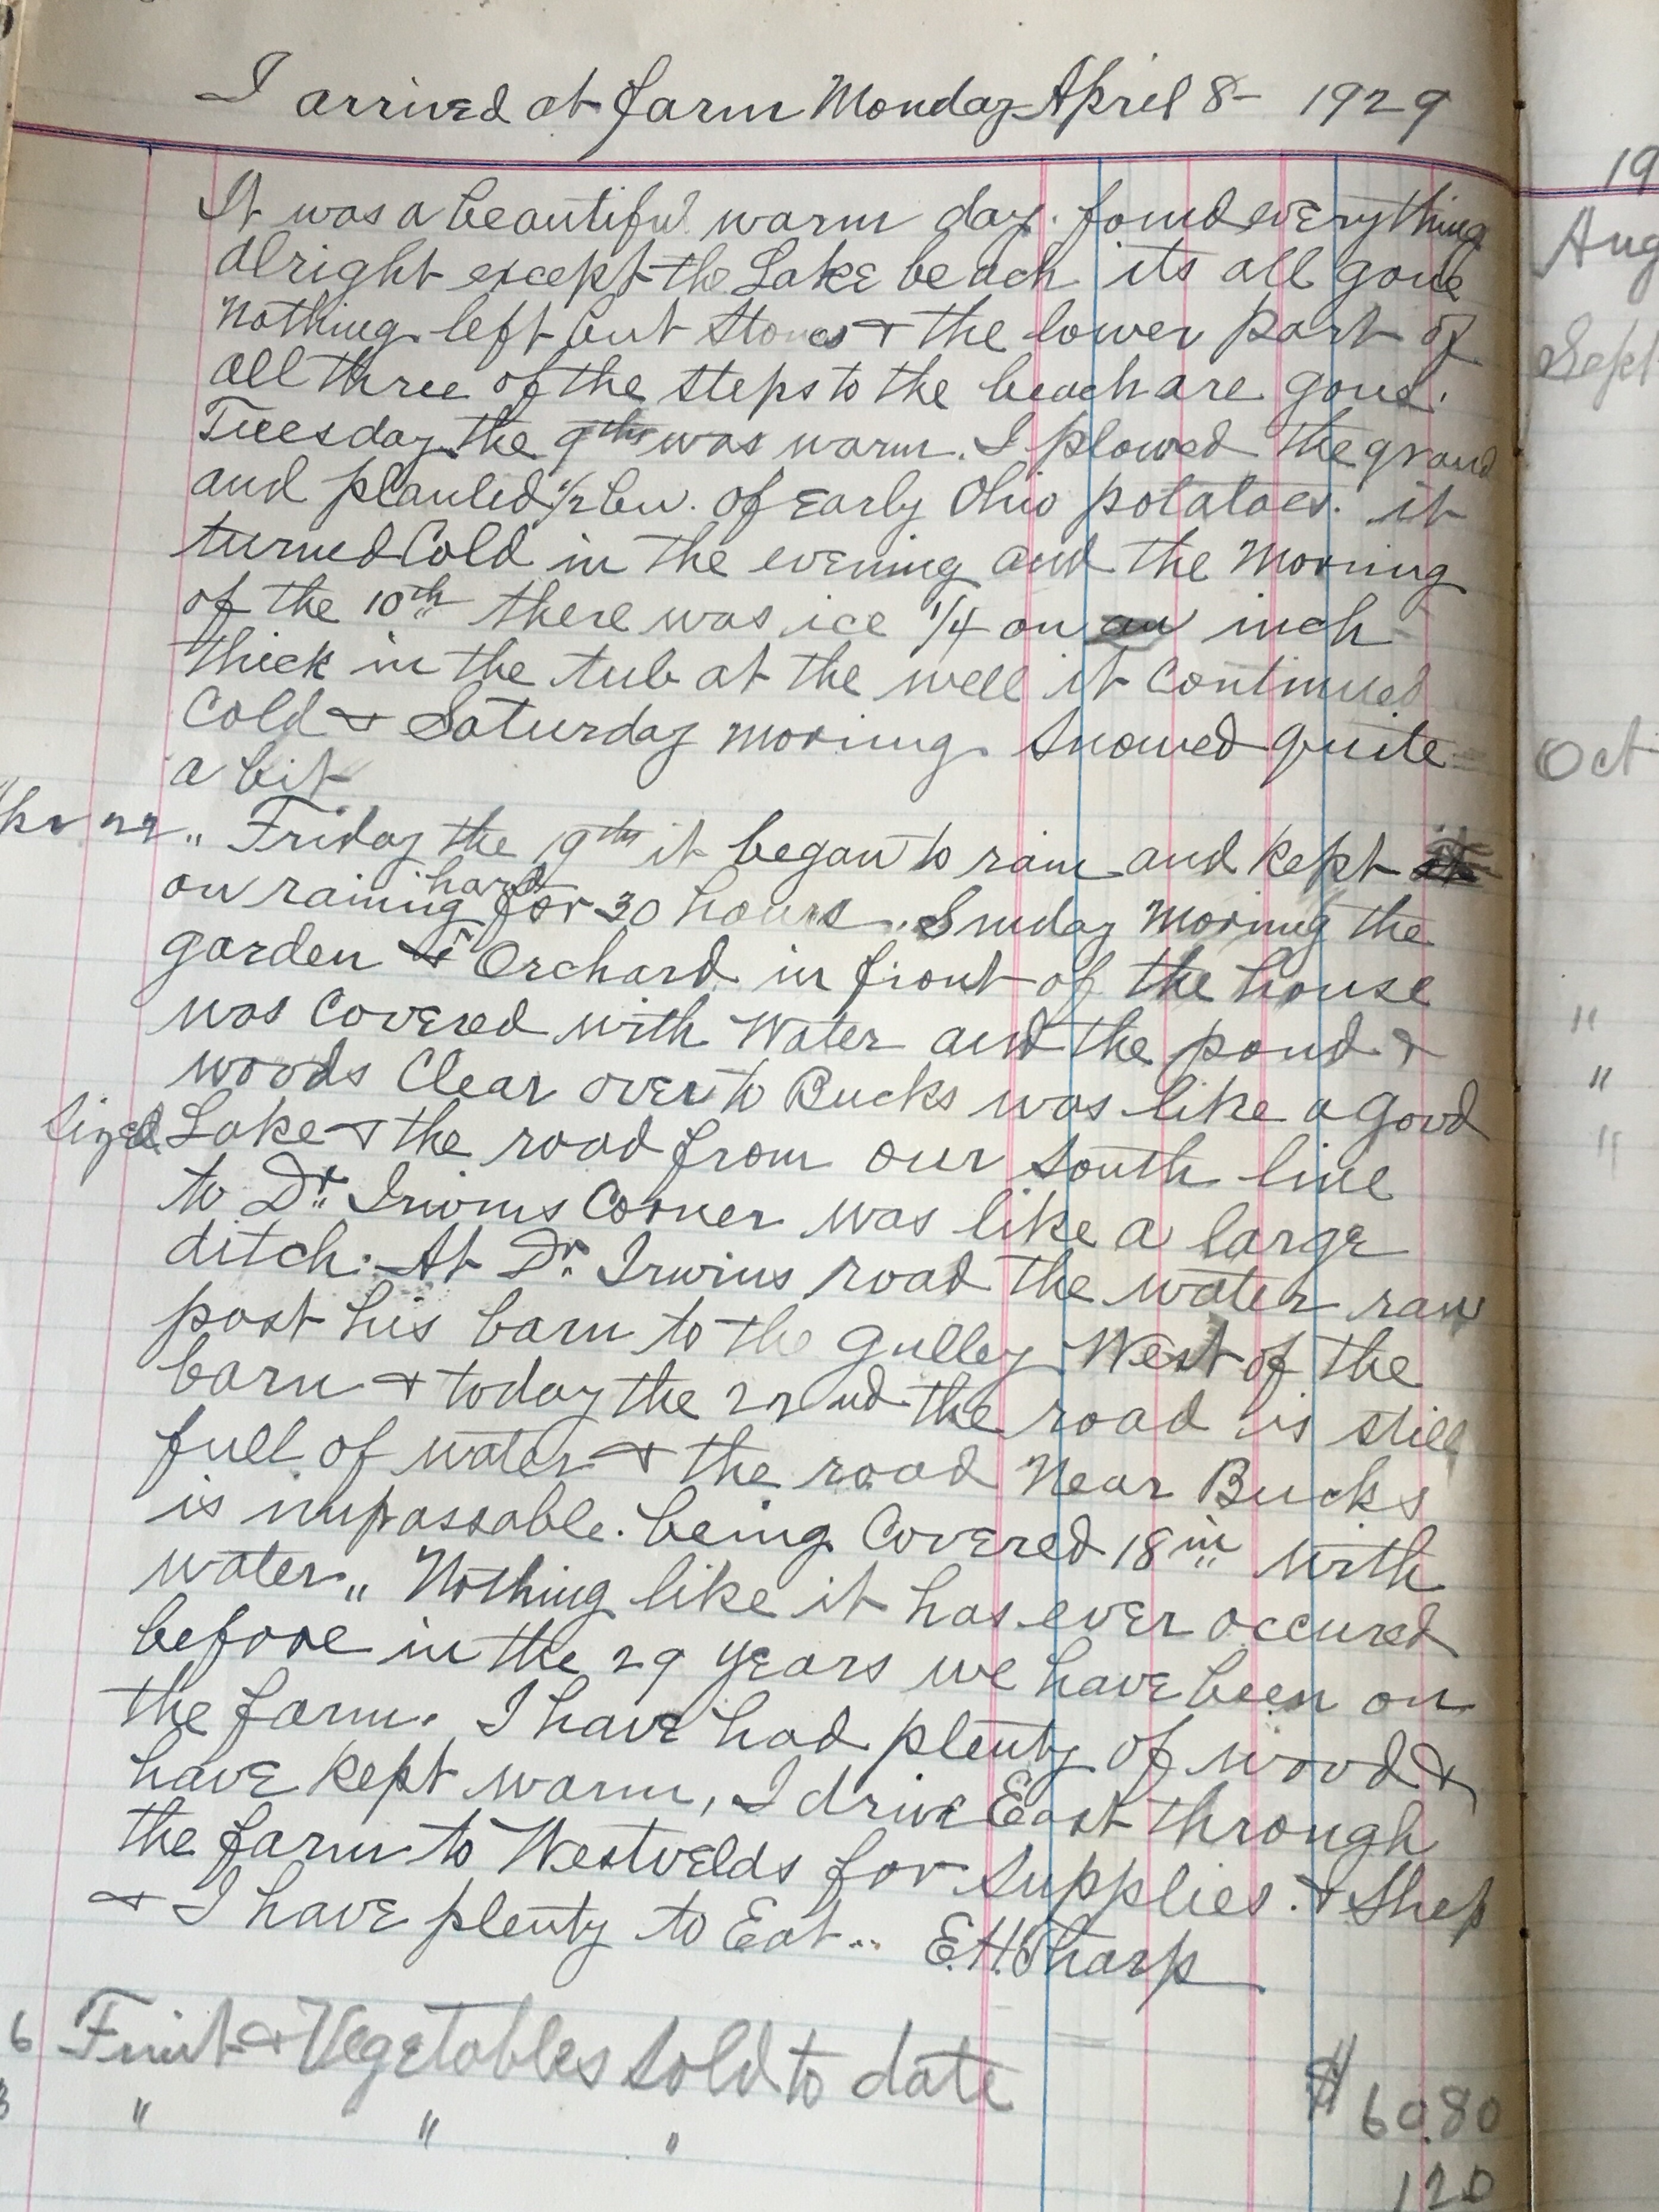 I arrived at farm Monday April 8 - 1929
It was a beautiful warm day. found everything
alright except the Lake beach its all gone
Nothing left but stones & the lower part of
all three of the steps to the beach are gone.
Tuesday the 9th was warm. I plowed the ground
and planted 1/2 bu. of Early Ohio potatoes. it
turned Cold in the evening and the Morning
of the 10th there was ice 1/4 on an inch
thick in the tub at the well it Continued
Cold & Saturday morning Snowed quite
a bit
22 " Friday the 19th it began to rain and kept it
on raining hard for 30 hours.. Sunday Morning the
garden & Orchard in front of the house
was Covered with Water and the pond &
woods Clear over to Bucks was like a Good
Sized Lake & the road from our South line
to Dr. Irwins Corner was like a large
ditch. At Dr. Irwins road the water ran
past his barn to the Gulley West of the
barn & today the 22nd the road is still
full of water & the road Near Bucks
is impassable. being Covered 18 in with
water.. Nothing like it has ever occured
before in the 29 years we have been on
the farm. I have had plenty of wood &
have kept warm, I drive East through
the farm to Westvelds for Supplies. & Shep
& I have plenty to Eat.. E.H. Tharp
6 Fruit & Vegetables Sold to date $ 60.80
" " "
120
19
Aug
Sept
Oct
"
"
"